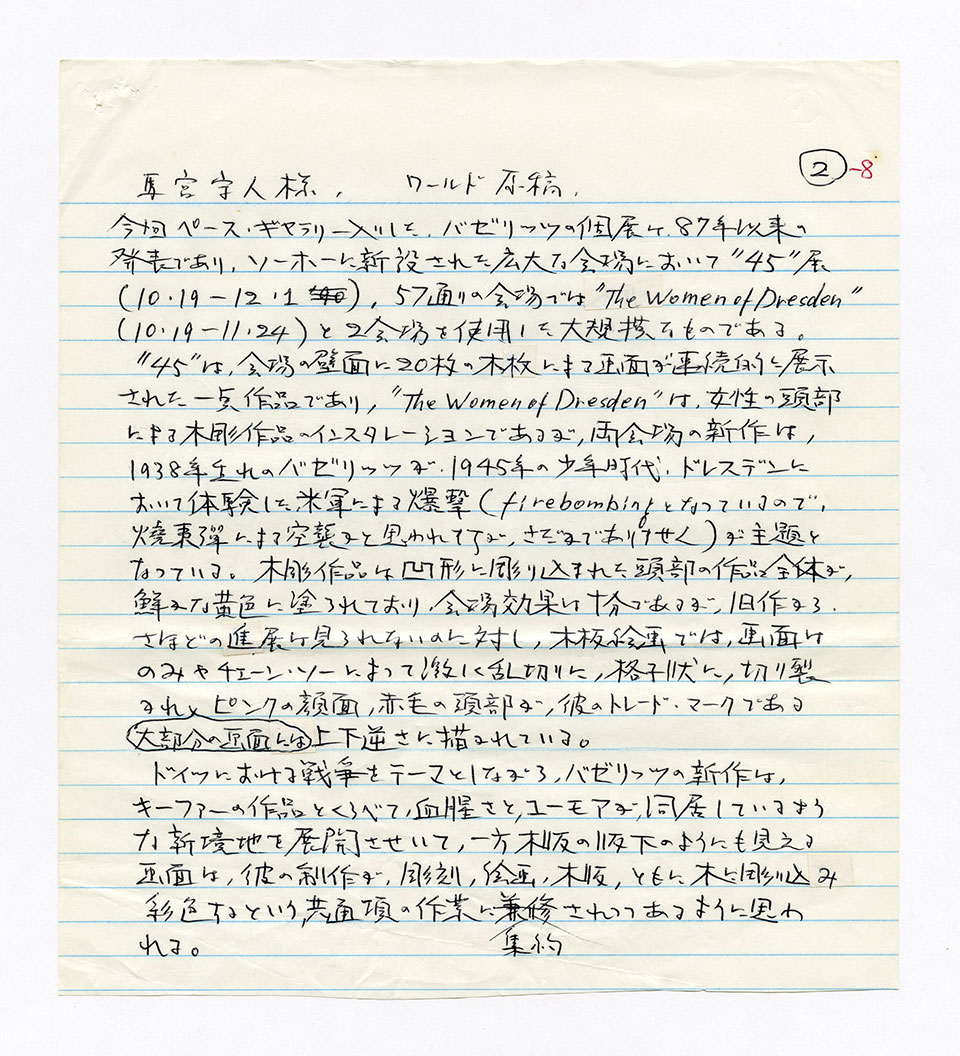 ② -8
馬宮守人様, ワールド原稿,
今回ペース・ギャラリー入りした, バゼリッツの個展は, 87年以来の
発表であり, ソーホーに新設された広大な会場において"45"展
(10.19-12.1), 57通りの会場では"The Women of Dresden"
(10.19-11.24)と2会場を使用した大規模なものである。
"45"は, 会場の壁面に20枚の木板による画面が連続的に展示
された一点作品であり, "The Women of Dresden"は, 女性の頭部
による木彫作品のインスタレーションであるが, 両会場の新作は,
1938年生れのバゼリッツが, 1945年の少年時代, ドレスデンに
おいて体験した, 米軍による爆撃(firebombingとなっているので,
焼夷弾による空襲かと思われますが, さだかでありません)が主題と
なっている。木彫作品は凹形に彫り込まれた頭部の作品全体が,
鮮かな黄色に塗られており, 会場効果は十分であるが, 旧作から,
さほどの進展は見られないのに対し, 木板絵画では, 画面は
のみやチェーン・ソーによって激しく乱切りに, 格子状に, 切り裂
かれ, ピンクの顔面, 赤毛の頭部が, 彼のトレード・マークである
大部分の画面には上下逆さに描かれている。
ドイツにおける戦争をテーマとしながら, バゼリッツの新作は,
キーファーの作品とくらべて, 血腥さと, ユーモアが, 同居しているよう
な新境地を展開させいて, 一方木版の版下のようにも見える
画面は, 彼の制作が, 彫刻, 絵画, 木版, ともに木に彫り込み
彩色するという, 共通項の作業に兼修されつつあるように思わ
れる。 集約